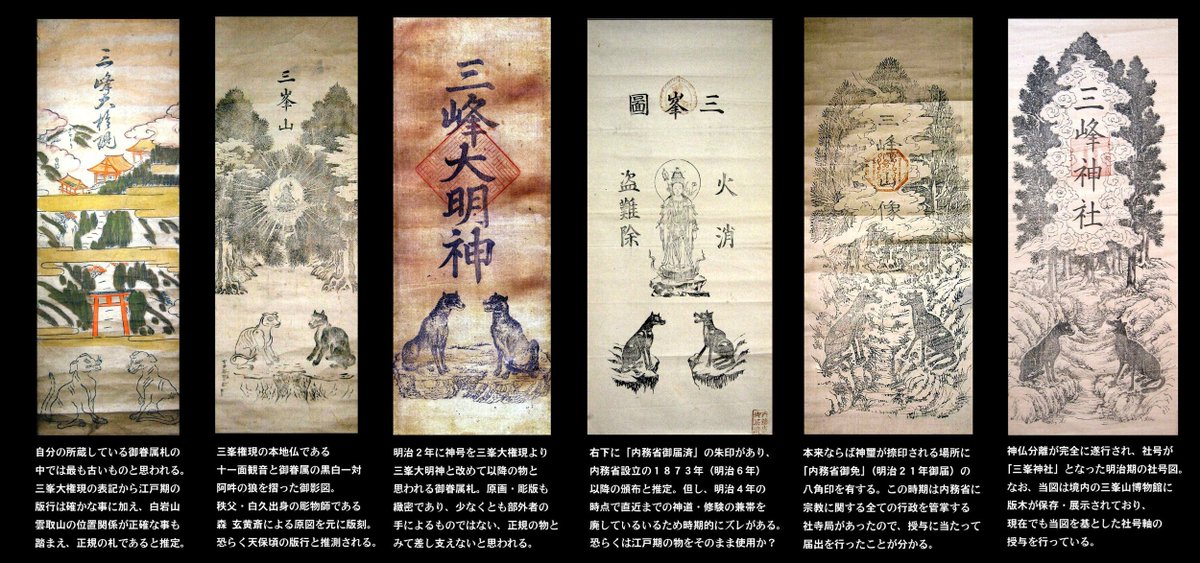 三峰大権現
三峯山
三峰大明神
三峯圖
火消
盗難除
三峰山像
三峰神社
自分の所蔵している御眷属札の
中では最も古いものと思われる。
三峯大権現の表記から江戸期の
版行は確かな事に加え、白岩山
雲取山の位置関係が正確な事も
踏まえ、正規の札であると推定。
三峯権現の本地仏である
十一面観音と御眷属の黒白一対
阿吽の狼を摺った御影図。
秩父・白久出身の彫物師である
森 玄黄斎による原図を元に版刻。
恐らく天保頃の版行と推測される。
明治2年に神号を三峯大権現より
三峯大明神と改めて以降の物と
思われる御眷属札。原画・彫版も
緻密であり、少なくとも部外者の
手によるものではない、正規の物と
みて差し支えないと思われる。
右下に「内務省御届済」の朱印があり、
内務省設立の1873年（明治6年）
以降の頒布と推定。但し、明治4年の
時点で直近までの神道・修験の兼帯を
廃しているいるため時期的にズレがある。
恐らくは江戸期の物をそのまま使用か？
本来ならば神璽が捺印される場所に
「内務省御免」（明治21年御届）の
八角印を有する。この時期は内務省に
宗教に関する全ての行政を管掌する
社寺局があったので、授与に当たって
届出を行ったことが分かる。
神仏分離が完全に遂行され、社号が
「三峯神社」となった明治期の社号図。
なお、当図は境内の三峯山博物館に
版木が保存・展示されており、
現在でも当図を基とした社号軸の
授与を行っている。